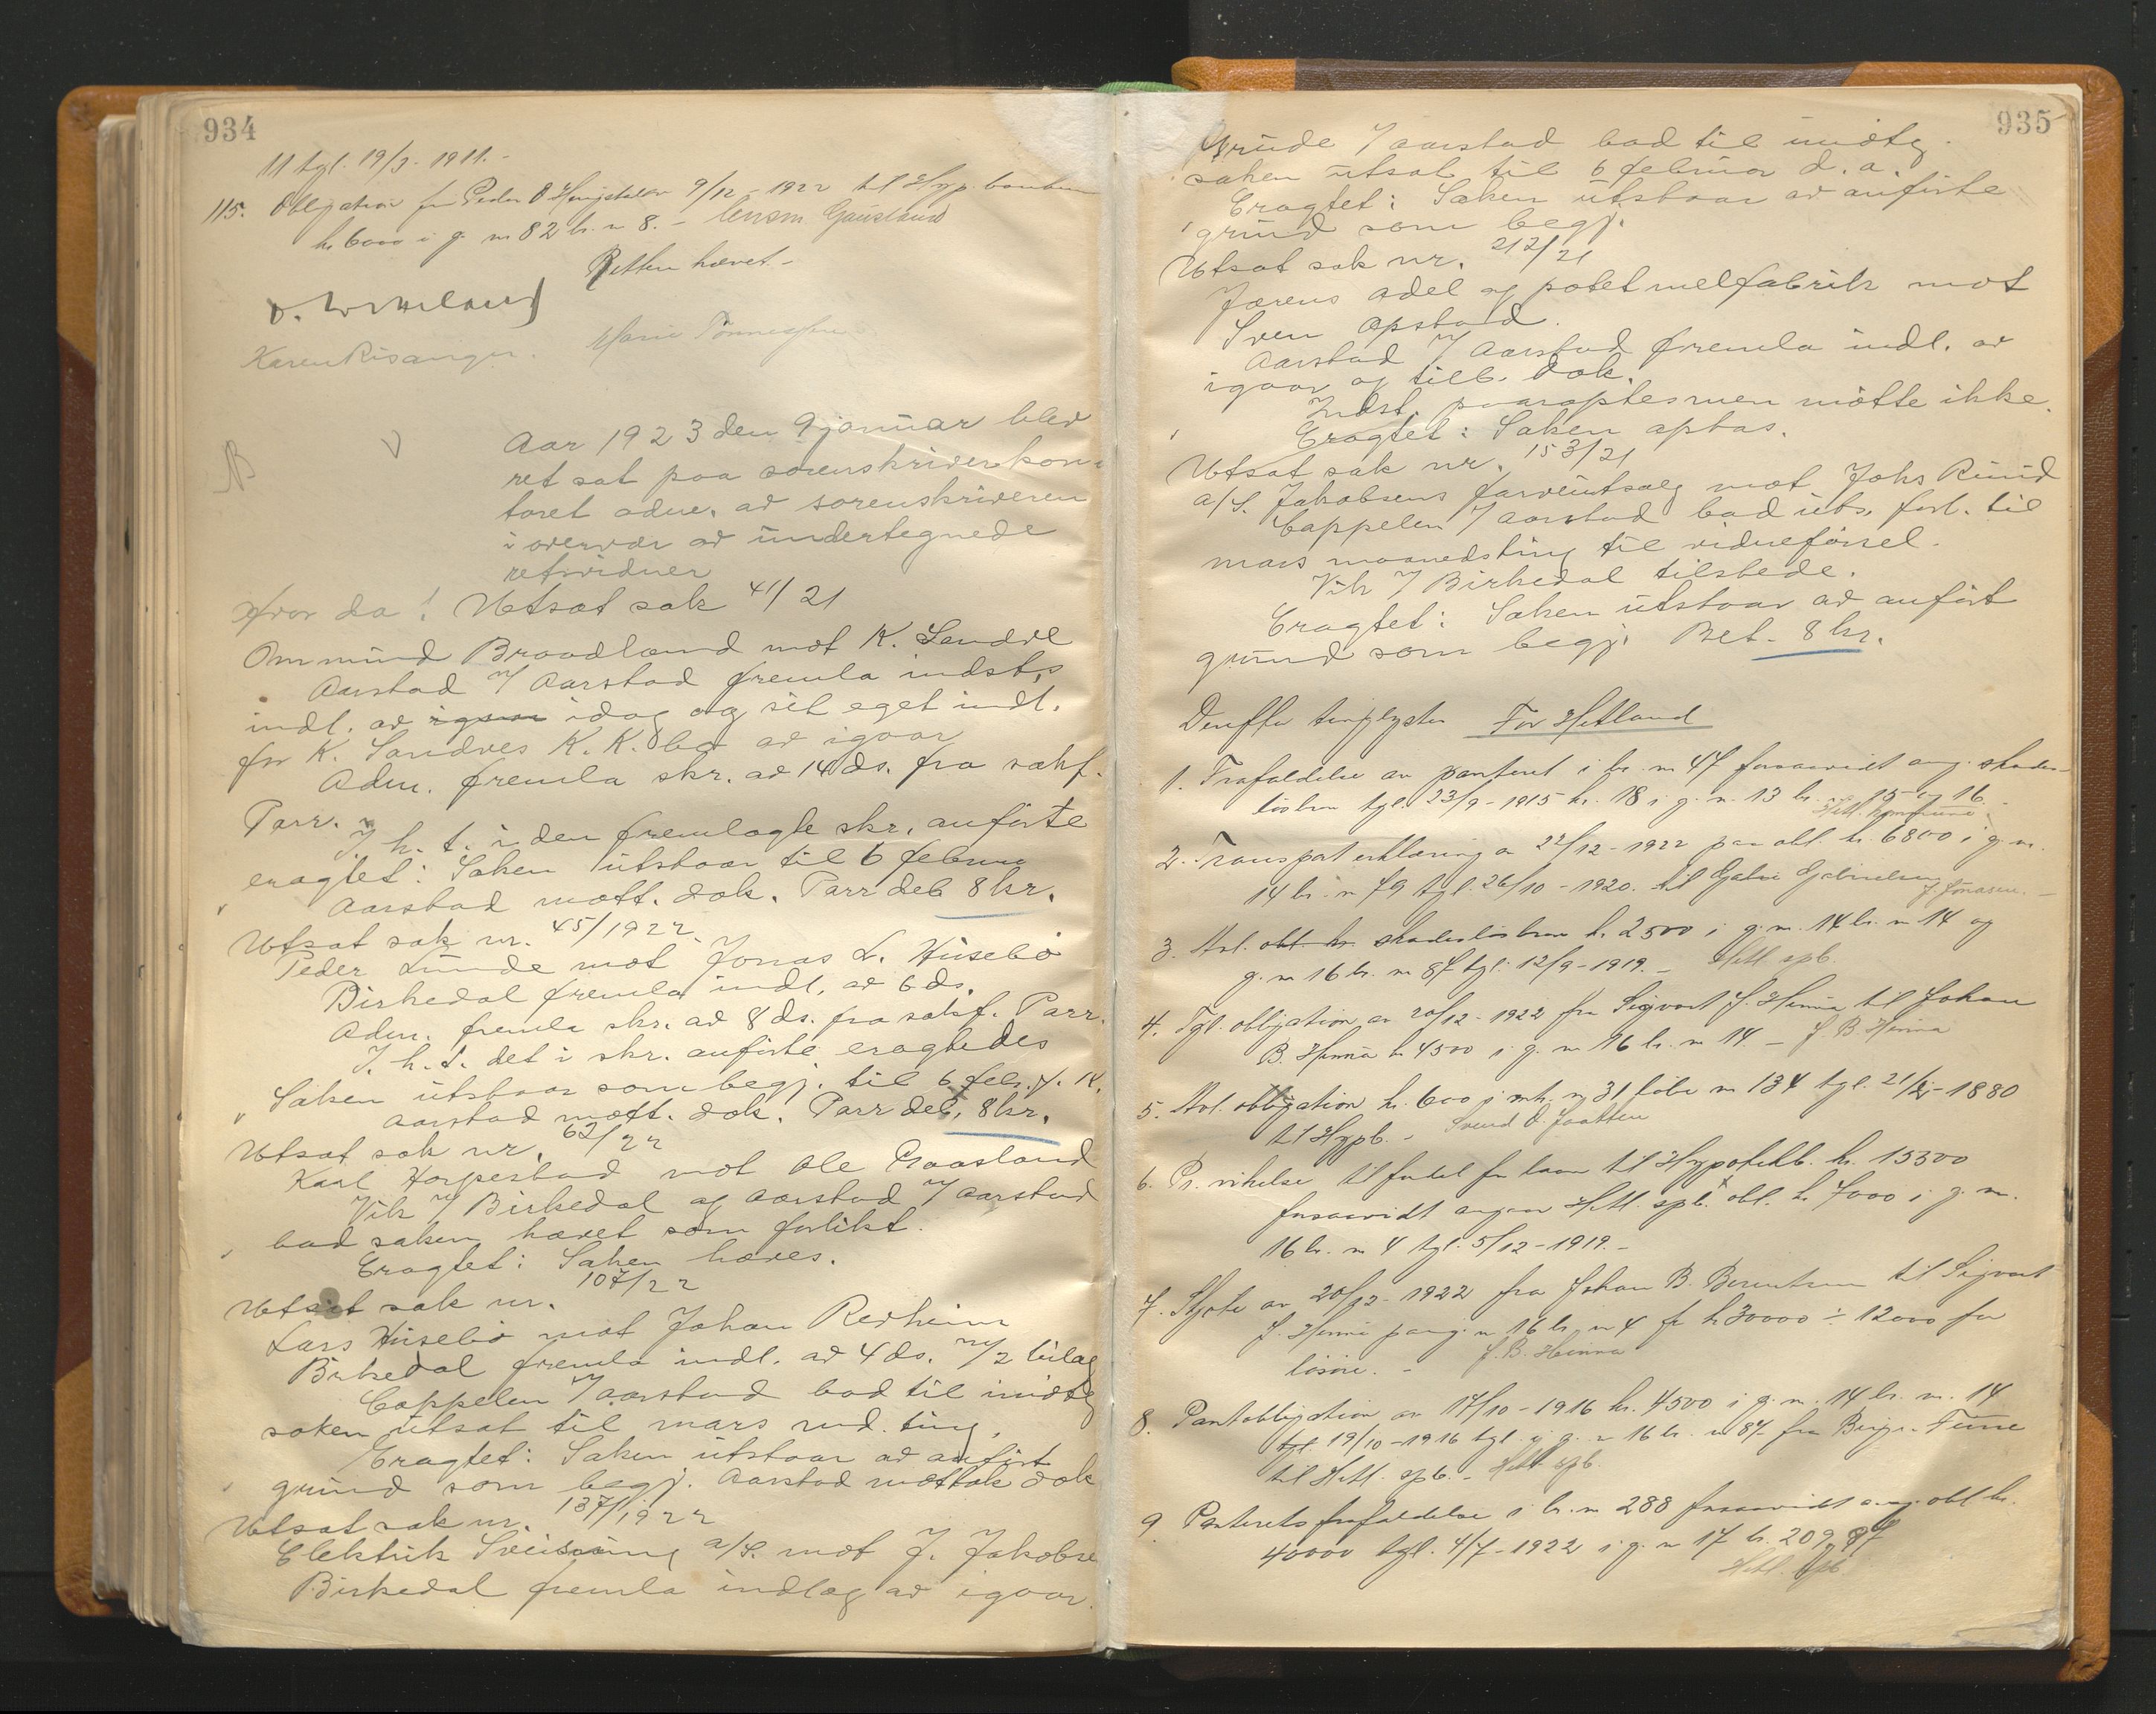 934
11 tgl. 19/3 - 1911. -
115. Obligation fra Peder O 9/12 - 1922 til Hyp. banken
kr 6000 i g. nr 82 br. nr 8. - lensm Gausland
Retten hævet -
Karen Risanger. Marie Tønnessen
Aar 1923 den 9 januar blev
ret sat paa sorenskriverkon-
toret adm. av sorenskriveren
i overvær av undertegnede
retsvidner
Hvor da! Utsat sak 41/21
Ommund Braadland mot K. Sandve
Aarstad v/ Aarstad fremla indst.s
indl. av igaar idag og sit eget indl.
for K. Sandves K. K. bo av igaar
Adm. fremla skr. av 14 ds. fra sakf.
Parr.
I h. t. i den fremlagte skr. anførte
eragtet: Saken utstaar til 6 februar
Aarstad mott. dok. Parr deb 8 kr.
Utsat sak nr. 45/1922
Peder Lunde mot Jonas L. Husebø
Birkedal fremla indl. av 6 ds.
Adm. fremla skr. av 8 ds. fra sakf. Parr.
I. h. t. det i skr. anførte eragtedes
Saken utstaar som begj. til 6 febr. f. K.
Aarstad mott. dok. Parr deb. 8 kr.
Utsat sak nr. 62/22
Karl Horpestad mot Ole Braastand
Vik v/ Birkedal og Aarstad v/ Aarstad
bad saken hævet som forlikt.
Eragtet: Saken hæves.
Utsat sak nr. 107/22
Lars Husebø mot Johan Redheim
Birkedal fremla indl. av 4 ds. m/2 bilag
Cappelen v/ Aarstad bad til imøteg
saken utsat til mars md. ting.
Eragtet: Saken utstaar av anført
grund som begj. Aarstad mottok dok
Utsat sak nr. 137/1922
Elektrik Sveisning a/S. mot J. Jakobsen
Birkedal fremla indlæg av igaar.
935
Grude v/ Aarstad bad til imøteg.
saken utsat til 6 februar d. a.
Eragtet: Saken utstaar av anførte
grund som begj.
Utsat sak nr. 212/21
Jærens adel og potetmelfabrik mot
Sven Opstad.
Aarstad v/ Aarstad fremla indl. av
igaar og tilb. dok.
Indst. paaroptes men møtte ikke.
Eragtet: Saken optas.
Utsat sak nr. 153/21
A/S. Jakobsens farveutsalg mot Johs Ruud
Cappelen v/ Aarstad bad uts. forl. til
mars maanedsting til vidneførsel.
Vik v/ Birkedal tilstede.
Eragtet: Saken utstaar av anført
grund som begj. Bet. 8 kr.
Derefter tinglystes For Hetland
1. Frafaldelse av panteret i br. nr 47 forsaavidt ang. skades-
løsbrev tgl. 23/9 - 1915 kr. 18 i g. nr. 13 br. nr 15 og 16.
Hetl. kommune
2. Transporterklæring av 22/12 - 1922 paa obl. kr. 6800 i g. nr.
14 br. nr 79 tgl. 26/10 - 1920. til Gabriel Gabrielsen
3. Avl. obl. kr. skadesløsbrev kr. 2500 i g. nr. 14 br. nr 14 og
g. nr 16 br. nr 87 tgl. 12/9 - 1919. - Hetl. spb.
4. Tgl. obligation av 20/12 - 1922 fra Sigvart J. Hinna til Johan
B. Hinna kr 4500 i g. nr 16 br. nr 14 - J. B. Hinna
5. Avl. obligation kr. 600 i mtr. nr 31 løbe nr 134 tgl. 21/2 - 1880
til Hypb. - Svend O. Jaatten
6. Pr. vikelse til fordel for laan til Hypotekb. kr. 15300
forsaavidt angaar Hetl. spb.s obl. kr 7000 i g. nr.
16 br. nr 4 tgl. 5/12 - 1919. -
7. Skjøte av 20/12 - 1922 fra Johan B. Berentsen til Sigvart
J. Hinna paa g. nr 16 br. nr 4 for kr 30000 ÷ 12000 for
løsøre. - J. B. Hinna
8. Pantobligation av 17/10 - 1916 kr. 4500 i g. nr. 14 br. nr. 14
tgl 19/10 - 1916 tgl. i g. nr 16 br. nr 87 fra Birger Tune
til Hetl. spb. - Hetl spb.
9 Panterets frafaldelse i br. nr 288 forsaavidt ang. obl kr.
40000 tgl. 4/7 - 1922 i g. nr 17 br. 209, 87
Hetl. spb.